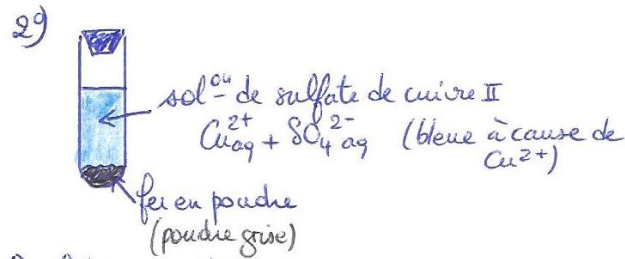 2°)
sol^on de sulfate de cuivre II
Cu²⁺aq + SO₄²⁻aq (bleue à cause de
Cu²⁺)
fer en poudre
(poudre grise)